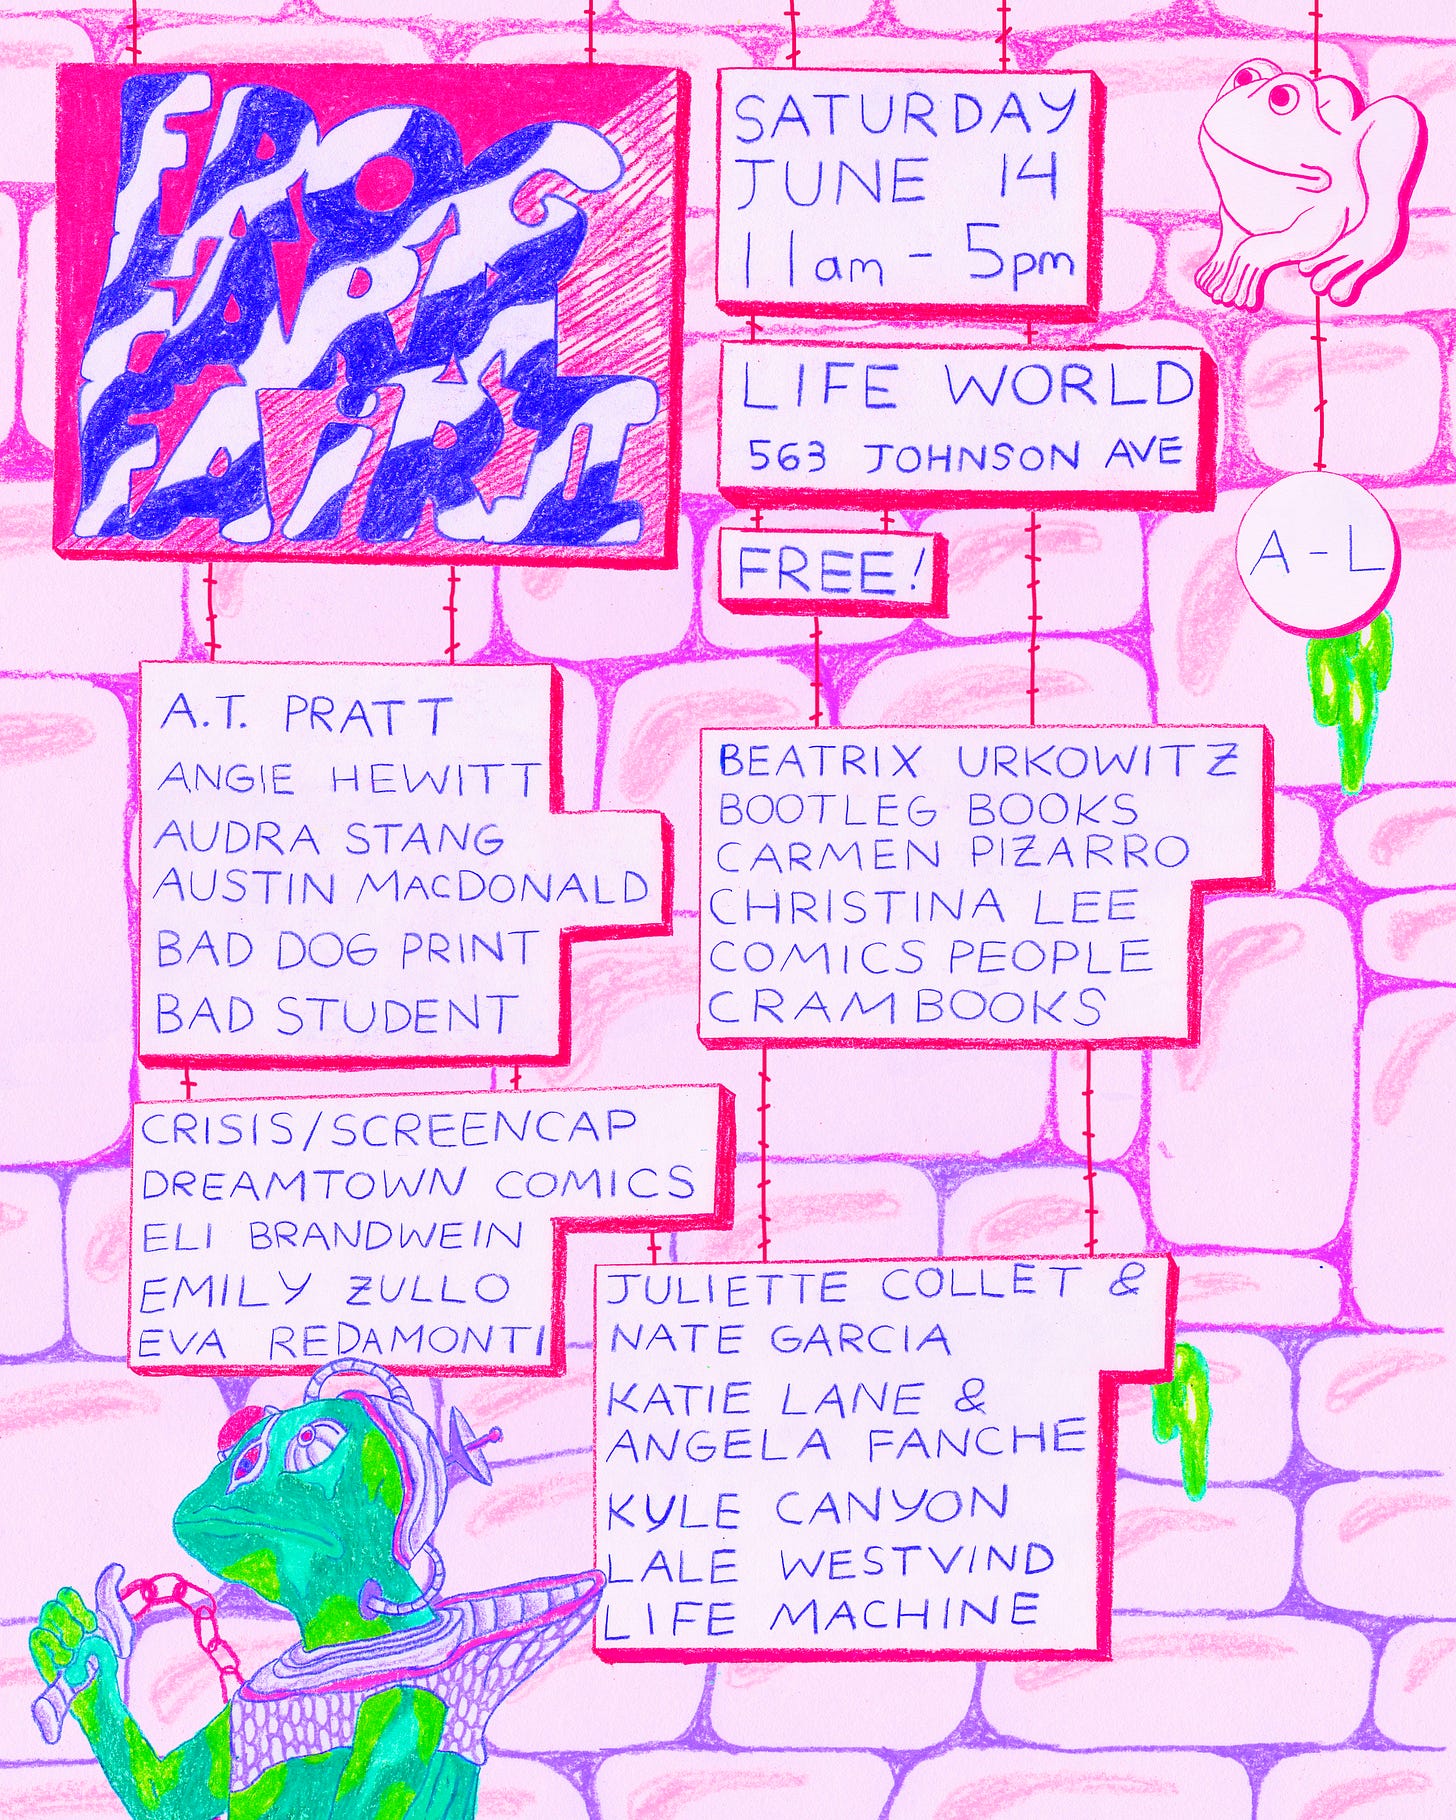 FROG
FARM
FAIR II
SATURDAY
JUNE 14
11am - 5pm
LIFE WORLD
563 JOHNSON AVE
FREE!
A - L
A.T. PRATT
ANGIE HEWITT
AUDRA STANG
AUSTIN MACDONALD
BAD DOG PRINT
BAD STUDENT
BEATRIX URKOWITZ
BOOTLEG BOOKS
CARMEN PIZARRO
CHRISTINA LEE
COMICS PEOPLE
CRAM BOOKS
CRISIS/SCREENCAP
DREAMTOWN COMICS
ELI BRANDWEIN
EMILY ZULLO
EVA REDAMONTI
JULIETTE COLLET &
NATE GARCIA
KATIE LANE &
ANGELA FANCHE
KYLE CANYON
LALE WESTVIND
LIFE MACHINE